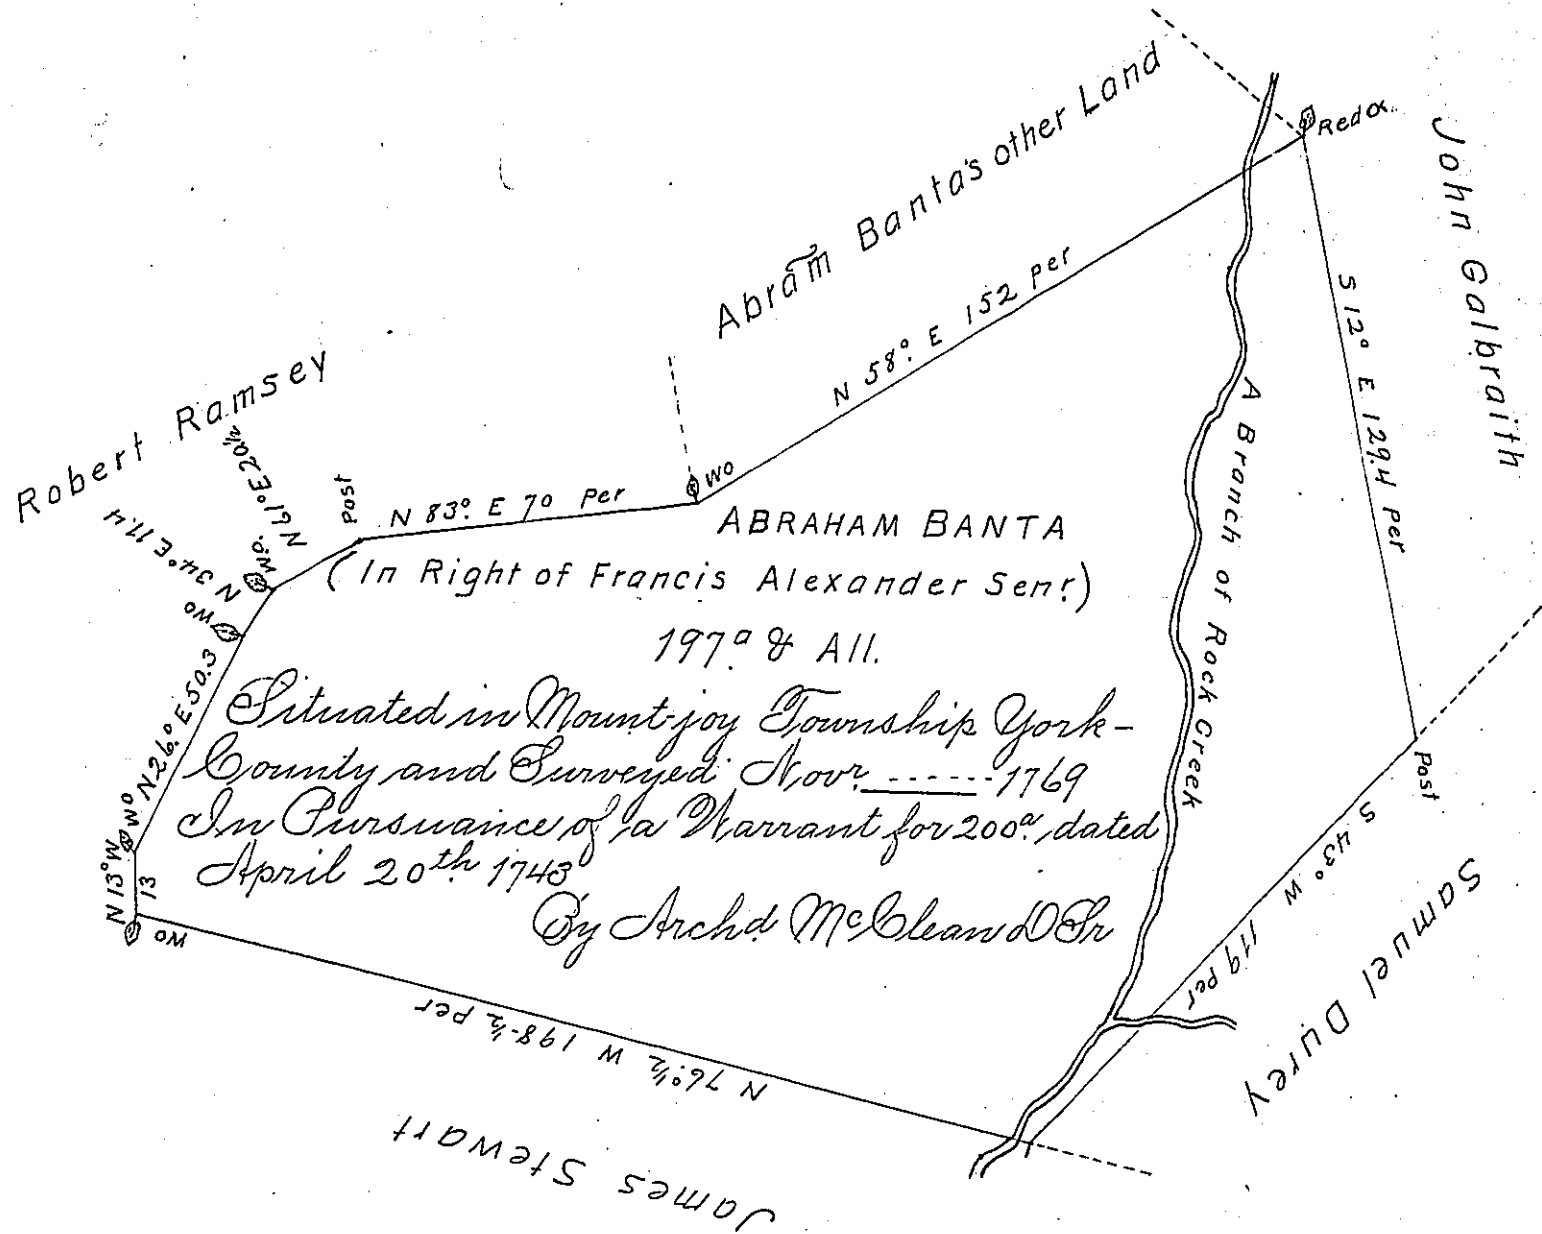 Abram Banta's other Land
Red o.
John Galbraith
N 58° E 152 Per
S 12° E 129.4 Per
Robert Ramsey
N 61° E 20½
N 34° E 11.4
Post
N 83° E 70 Per
Wo
W.o.
Wo
ABRAHAM BANTA
(In Right of Francis Alexander Senr.)
197a. & All.
Situated in Mount-joy Township York-
County and Surveyed Novr. ------ 1769
In Pursuance of a Warrant for 200a. dated
April 20th 1743
By Archd. McClean D Sr
A Branch of Rock Creek
N 26° E 50.3
Wo
N 13° W
13
Wo
Post
S 43° W 119 Per
Samuel Durey
N 76°½ W 198-½ Per
James Stewart